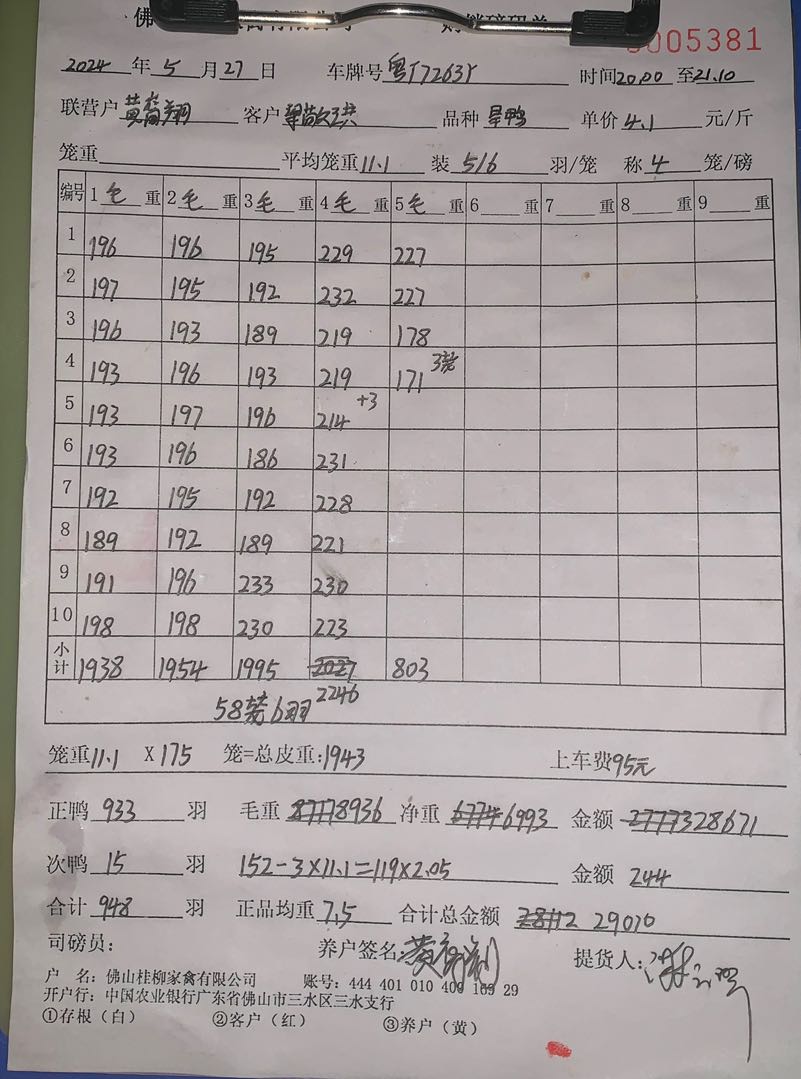 佛
0005381
2024 年 5 月 27 日 车牌号 粤T7263Y 时间 20.00 至 21.10
联营户 黄 翔 客户 品种 旱鸭 单价 4.1 元/斤
笼重 平均笼重 11.1 装 5/6 羽/笼 称 4 笼/磅
编号 1 毛 重 2 毛 重 3 毛 重 4 毛 重 5 毛 重 6 重 7 重 8 重 9 重
1 196 196 195 229 227
2 197 195 192 232 227
3 196 193 189 219 178
4 193 196 193 219 171 3笼
5 193 197 196 214 +3
6 193 196 186 231
7 192 195 192 228
8 189 192 189 221
9 191 196 233 230
10 198 198 230 223
小计 1938 1954 1995 2027 803
58笼6羽 2246
笼重 11.1 X 175 笼=总皮重: 1943 上车费 95元
正鸭 933 羽 毛重 8936 净重 6993 金额 28671
次鸭 15 羽 152-3×11.1=119×2.05 金额 244
合计 948 羽 正品均重 7.5 合计总金额 29010
司磅员: 养户签名: 黄 翔 提货人:
户 名: 佛山桂柳家禽有限公司 账号: 444 401 010 400 169 29
开户行: 中国农业银行广东省佛山市三水区三水支行
①存根（白） ②客户（红） ③养户（黄）